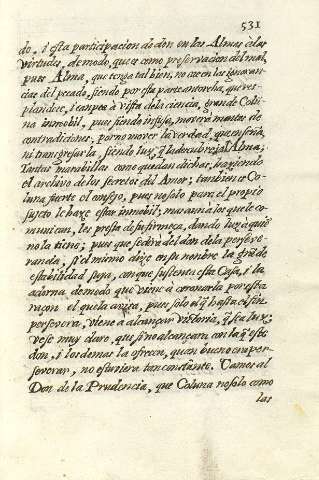 531
do. i esta participacion de don en las Almas i elas
virtudes, de modo, que es como preservacion del mal,
pues Alma, que tenga tal bien, no cae en las ignoran-
cias del pecado, siendo por esta parte antorcha, que res-
plandece, i campea à vista de la ciencia, grande Colu-
na inmobil, pues siendo infusa, moverà montes de
contradiciones, por no mover la verdad, que enseña,
ni transgresarla, siendo luz, q̃ la descubre, al Alma;
Tantas marabillas como quedan dichas, haziendo
el archivo de los secretos del Amor; tambien es Co-
luna fuerte el consejo, pues no solo para el propio
sujeto le haze estar inmobil; mas aun a los que le co-
munican, les presta de su firmeza, dando luz à quiẽ
no la tiene; pues que se dirà del don de la perseve-
rancia, si el mismo dize en su nombre la grãde
estabilidad suya, con que sustenta esta Casa, i la
adorna de modo que viene a coronarla por esta
raçon el que la avita, pues solo el q̃ hasta el fin
persevera, viene a alcançar victoria, q̃ sea luz,
vese muy claro, que si no alcançara con la q̃ este
don, i los demas la ofrecen, quan bueno era per-
severar, no estuviera tan constante. Vamos al
Don de la Prudencia, que Coluna no solo como
las